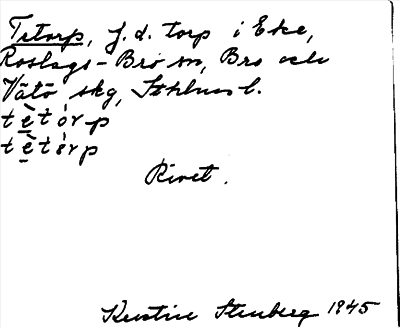 Tetorp, f.d. torp i Eke,
Roslags-Bro sn, Bro och
Vätö skg, Sthlms l.
tètórp
tètòrp
Rivet.
Kerstin Stenberg 1945